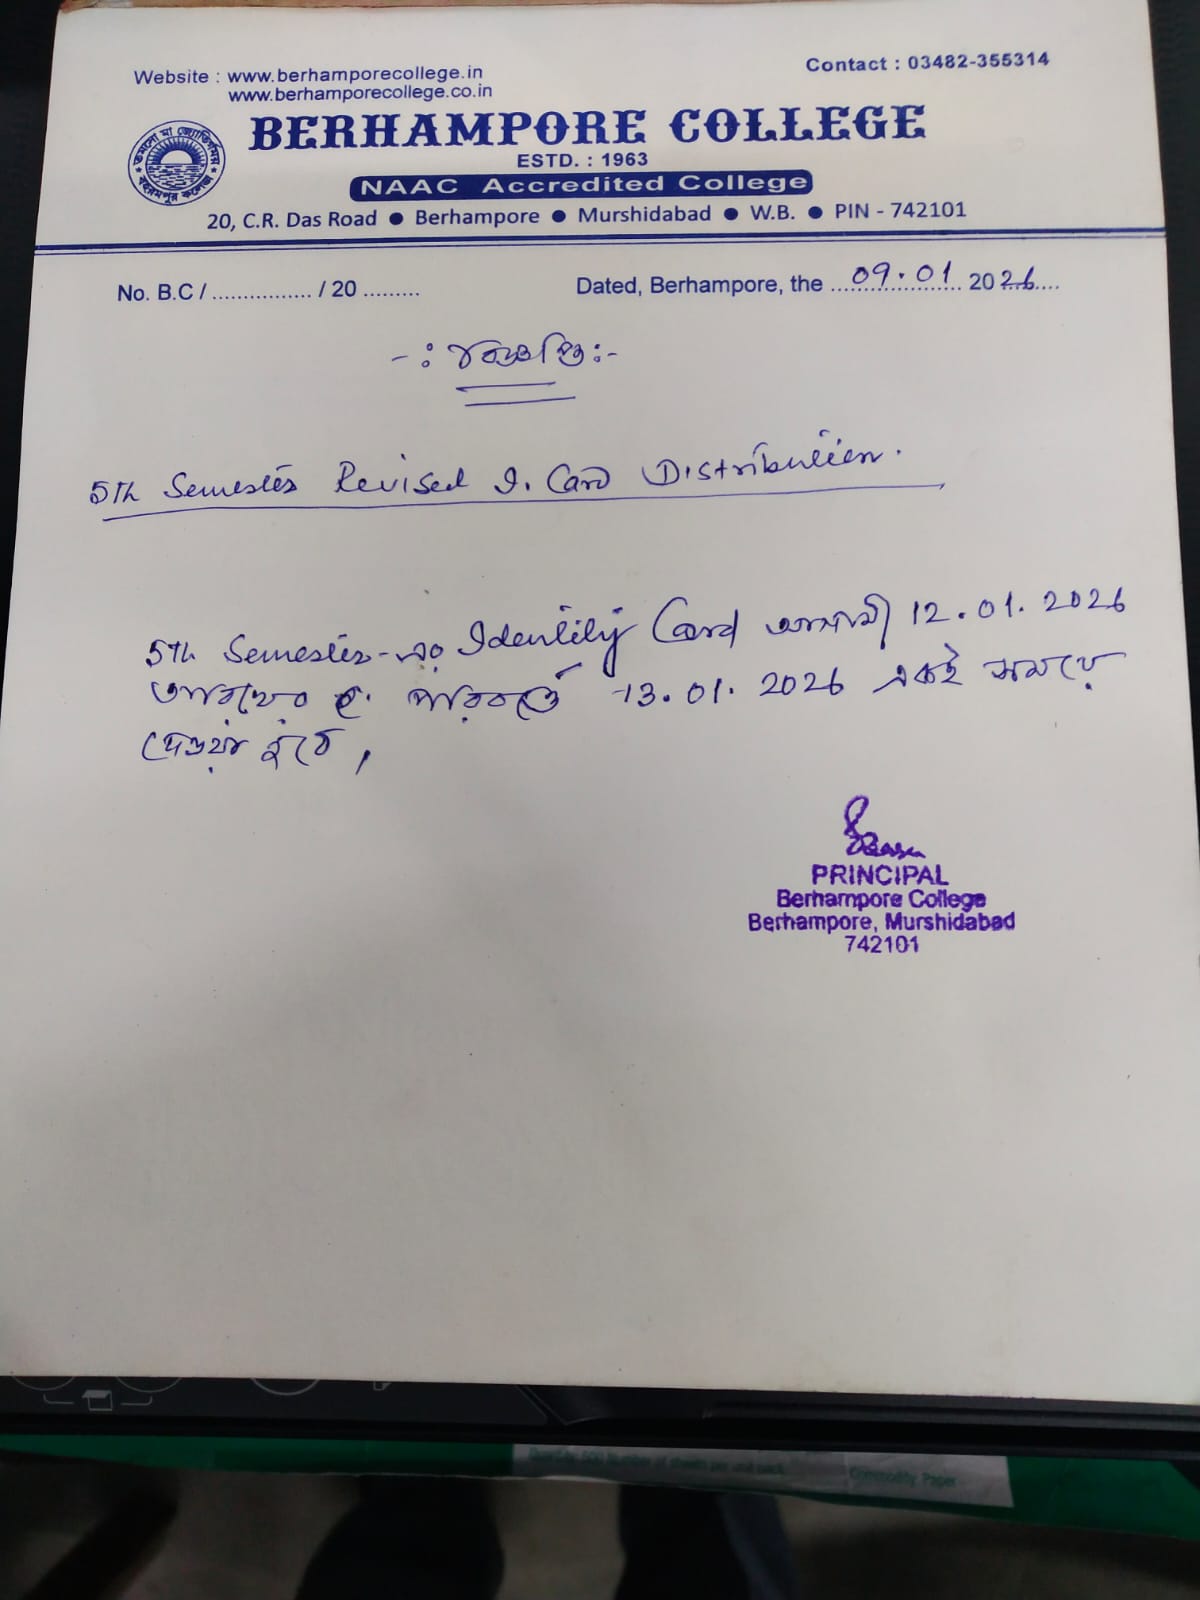 Website : www.berhamporecollege.in
www.berhamporecollege.co.in
Contact : 03482-355314
BERHAMPORE COLLEGE
ESTD. : 1963
NAAC Accredited College
20, C.R. Das Road ● Berhampore ● Murshidabad ● W.B. ● PIN - 742101
No. B.C / ................ / 20 .........
Dated, Berhampore, the 09.01 2026
5th Semester Revised I. Card Distribution.
5th Semester-এর Identity Card আগামী 12.01.2026
13.01.2026 একই সময়ে
দেওয়া হবে,
PRINCIPAL
Berhampore College
Berhampore, Murshidabad
742101